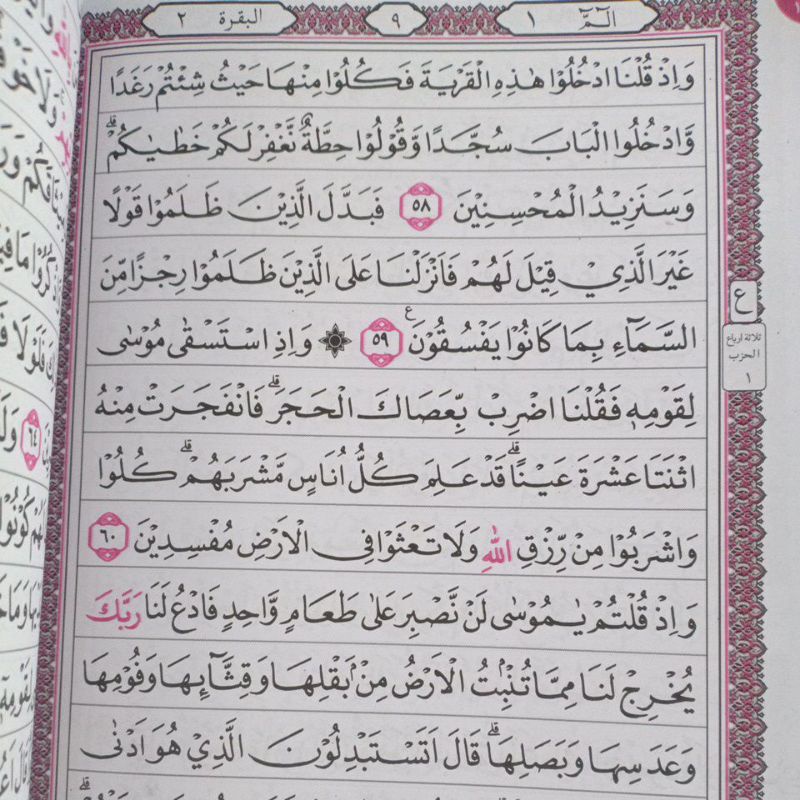 البقرة ٢
٩
الٓمّٓ ١
وَاِذْ قُلْنَا ادْخُلُوْا هٰذِهِ الْقَرْيَةَ فَكُلُوْا مِنْهَا حَيْثُ شِئْتُمْ رَغَدًا
وَّادْخُلُوا الْبَابَ سُجَّدًا وَّقُوْلُوْا حِطَّةٌ نَّغْفِرْ لَكُمْ خَطٰيٰكُمْۗ
وَسَنَزِيْدُ الْمُحْسِنِيْنَ ٥٨ فَبَدَّلَ الَّذِيْنَ ظَلَمُوْا قَوْلًا
غَيْرَ الَّذِيْ قِيْلَ لَهُمْ فَاَنْزَلْنَا عَلَى الَّذِيْنَ ظَلَمُوْا رِجْزًا مِّنَ
السَّمَاۤءِ بِمَا كَانُوْا يَفْسُقُوْنَ ࣖ ٥٩ ۞ وَاِذِ اسْتَسْقٰى مُوْسٰى
لِقَوْمِهٖ فَقُلْنَا اضْرِبْ بِّعَصَاكَ الْحَجَرَۗ فَانْفَجَرَتْ مِنْهُ
اثْنَتَا عَشْرَةَ عَيْنًاۗ قَدْ عَلِمَ كُلُّ اُنَاسٍ مَّشْرَبَهُمْۗ كُلُوْا
وَاشْرَبُوْا مِنْ رِّزْقِ اللّٰهِ وَلَا تَعْثَوْا فِى الْاَرْضِ مُفْسِدِيْنَ ٦٠
وَاِذْ قُلْتُمْ يٰمُوْسٰى لَنْ نَّصْبِرَ عَلٰى طَعَامٍ وَّاحِدٍ فَادْعُ لَنَا رَبَّكَ
يُخْرِجْ لَنَا مِمَّا تُنْۢبِتُ الْاَرْضُ مِنْۢ بَقْلِهَا وَقِثَّاۤىِٕهَا وَفُوْمِهَا
وَعَدَسِهَا وَبَصَلِهَاۗ قَالَ اَتَسْتَبْدِلُوْنَ الَّذِيْ هُوَ اَدْنٰى
ع
ثلاثة ارباع
الحزب
١
٦٤